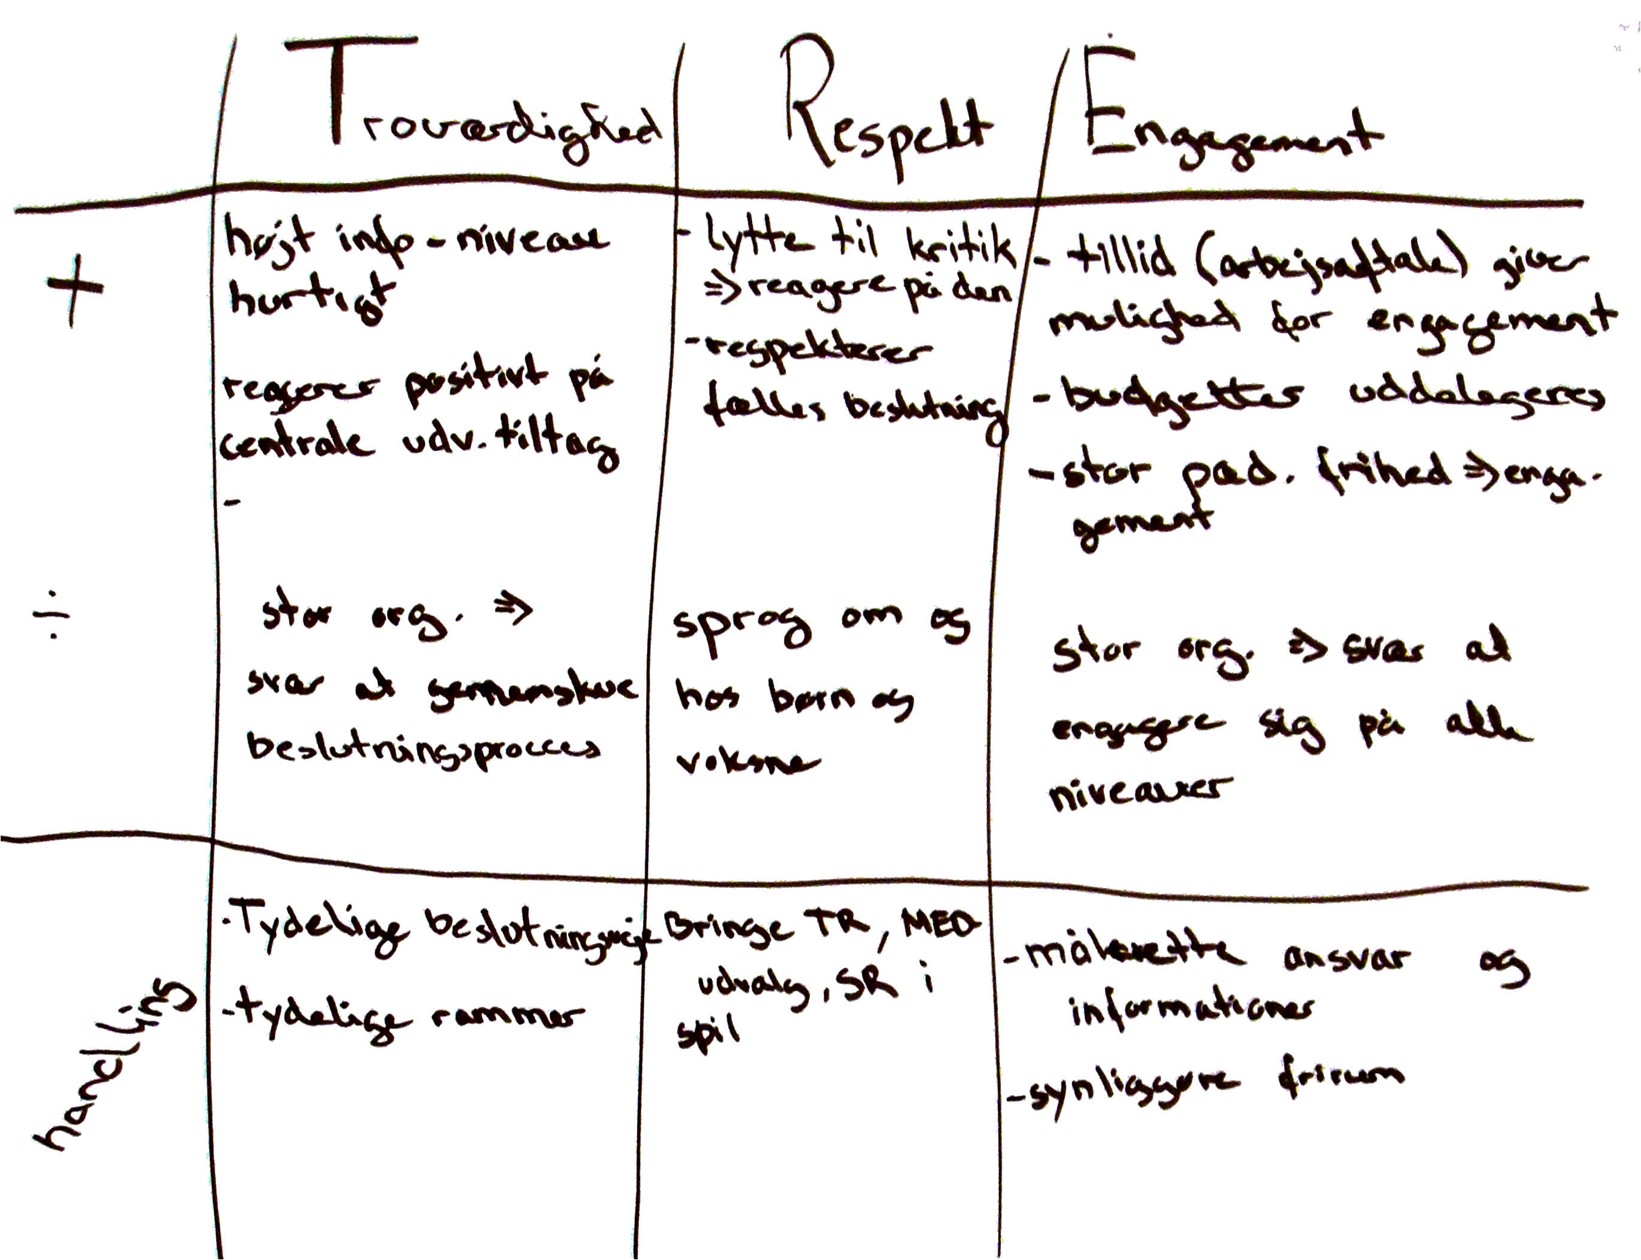 Troværdighed
Respekt
Engagement
+
højt info-niveau
hurtigt
reagerer positivt på
centrale udv. tiltag
-
- lytte til kritik
=> reagere på den
- respekterer
fælles beslutning
- tillid (arbejsaftale) giver
mulighed for engagement
- budgetter uddelegeres
- stor pæd. frihed => enga-
gement
÷
stor org. =>
svær at gennemskue
beslutningsprocces
sprog om og
hos børn og
voksne
stor org. => svær at
engagere sig på alle
niveauer
handling
- Tydelige beslutningsveje
- tydelige rammer
Bringe TR, MED
udvalg, SR i
spil
- målrette ansvar og
informationer
- synliggøre frirum